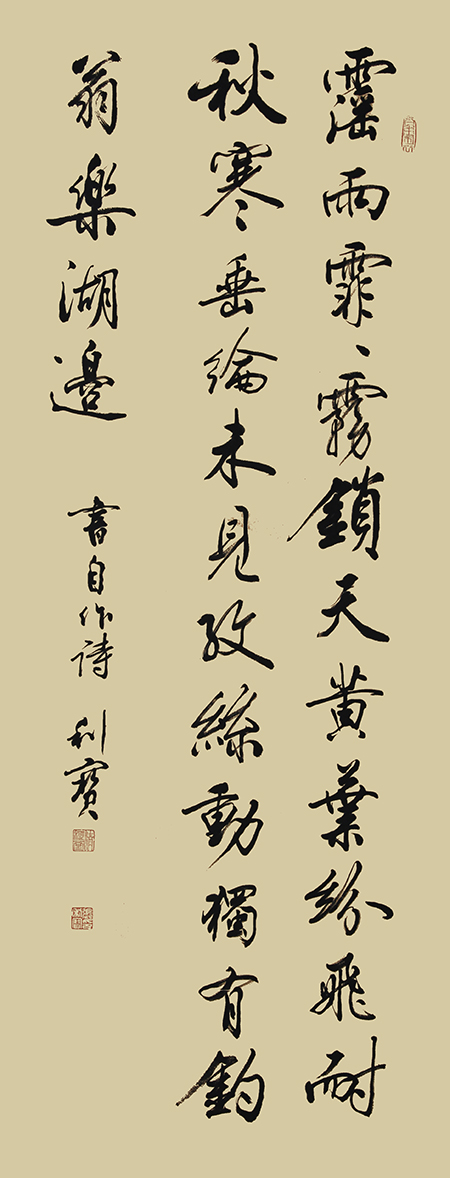 霪雨霏〻霧鎖天黄葉紛飛耐
秋寒垂綸未見紋絲動獨有釣
翁樂湖邊
書自作詩 利寶